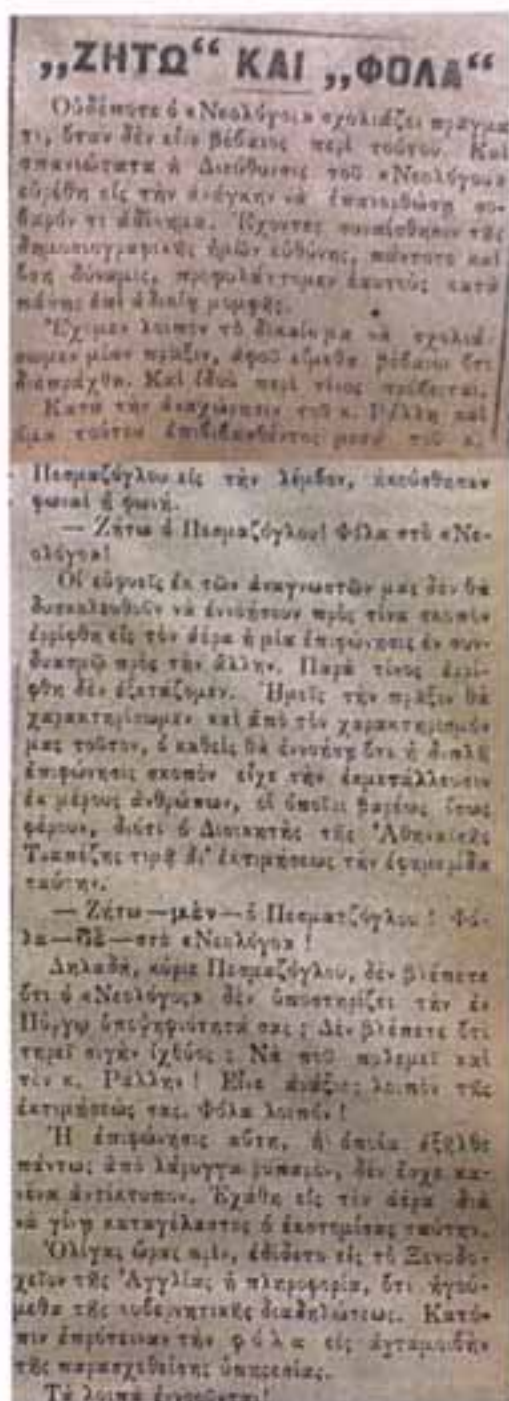 „ΖΗΤΩ“ ΚΑΙ „ΦΟΛΑ“
Οὐδέποτε ὁ «Νεολόγος» σχολιάζει πρᾶγμά
τι, ὅταν δὲν εἶνε βέβαιος περὶ τούτου. Καὶ
σπανιώτατα ἡ Διεύθυνσις τοῦ «Νεολόγου»
εὑρέθη εἰς τὴν ἀνάγκην νὰ ἐπανορθώσῃ σο-
βαρόν τι ἀδίκημα. Ἔχοντες συναίσθησιν τῆς
δημοσιογραφικῆς ἡμῶν εὐθύνης, πάντοτε καὶ
ὅση δύναμις, προφυλάττομεν ἑαυτοὺς κατὰ
πάσης ἐπὶ ἀδικίᾳ μομφῆς.
Ἔχομεν λοιπὸν τὸ δικαίωμα νὰ σχολιά-
σωμεν μίαν πρᾶξιν, ἀφοῦ εἴμεθα βέβαιοι ὅτι
διεπράχθη. Καὶ ἰδοὺ περὶ τίνος πρόκειται.
Κατὰ τὴν ἀναχώρησιν τοῦ κ. Ράλλη καὶ
ἅμα τούτου ἐπιβιβασθέντος μετὰ τοῦ κ.
Πεσμαζόγλου εἰς τὴν λέμβον, ἠκούσθησαν
φωναὶ ἢ φωνή.
— Ζήτω ὁ Πεσμαζόγλου! Φόλα στὸ «Νε-
ολόγο»!
Οἱ εὐφυεῖς ἐκ τῶν ἀναγνωστῶν μας δὲν θὰ
δυσκολευθοῦν νὰ ἐννοήσουν πρὸς τίνα σκοπὸν
ἐρρίφθη εἰς τὸν ἀέρα ἡ μία ἐπιφώνησις ἐν συν-
δυασμῷ πρὸς τὴν ἄλλην. Παρὰ τίνος ἐρρί-
φθη δὲν ἐξετάζομεν. Ἡμεῖς τὴν πρᾶξιν θὰ
χαρακτηρίσωμεν καὶ ἀπὸ τὸν χαρακτηρισμόν
μας τοῦτον, ὁ καθεὶς θὰ ἐννοήσῃ ὅτι ἡ διπλῆ
ἐπιφώνησις σκοπὸν εἶχε τὴν ἐκμετάλλευσιν
ἐκ μέρους ἀνθρώπων, οἱ ὁποῖοι βαρέως ἴσως
φέρουν, διότι ὁ Διοικητὴς τῆς Ἀθηναϊκῆς
Τραπέζης τιμᾷ δι' ἐκτιμήσεως τὴν ἐφημερίδα
ταύτην.
— Ζήτω—μὲν—ὁ Πεσματζόγλου! Φό-
λα—δὲ—στὸ «Νεολόγο»!
Δηλαδή, κύριε Πεσμαζόγλου, δὲν βλέπετε
ὅτι ὁ «Νεολόγος» δὲν ὑποστηρίζει τὴν ἐν
Πύργῳ ὑποψηφιότητά σας; Δὲν βλέπετε ὅτι
τηρεῖ σιγὴν ἰχθύος; Νὰ ποῦ πολεμεῖ καὶ
τὸν κ. Ράλλην! Εἶνε ἀνάξιος λοιπὸν τῆς
ἐκτιμήσεώς σας. Φόλα λοιπόν!
Ἡ ἐπιφώνησις αὕτη, ἡ ὁποία ἐξῆλθε
πάντως ἀπὸ λάρυγγα ρυπαρόν, δὲν ἔσχε κα-
νένα ἀντίκτυπον. Ἐχάθη εἰς τὸν ἀέρα διὰ
νὰ γίνῃ καταγέλαστος ὁ ἐκστομίσας ταύτην.
Ὀλίγας ὥρας πρίν, ἐδίδετο εἰς τὸ Ξενοδο-
χεῖον τῆς Ἀγγλίας ἡ πληροφορία, ὅτι ἡγού-
μεθα τῆς κυβερνητικῆς διαδηλώσεως. Κατό-
πιν ἐπρότειναν τὴν φόλα εἰς ἀνταμοιβὴν
τῆς παρασχεθείσης ὑπηρεσίας.
Τὰ λοιπὰ ἐννοοῦνται!